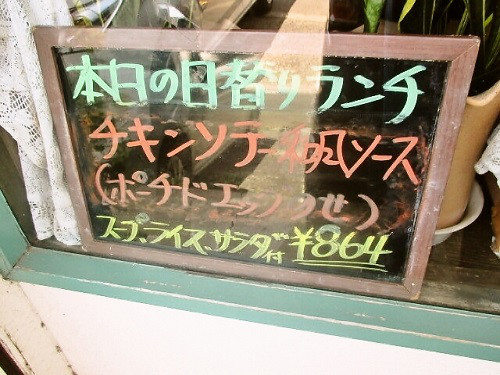 本日の日替りランチ
チキンソテー和風ソース
(ポーチドエッグのせ)
スープ、ライス、サラダ付 ¥864